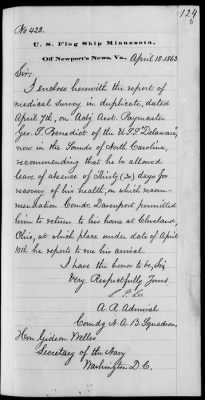 124
No 428.
U. S. Flag Ship Minnesota,
Off Newport's News, Va., April 18. 1863
Sir:
I enclose herewith the report of
medical survey in duplicate, dated
April 7th, on Act'g Asst. Paymaster
Geo. F. Benedict of the U.S.S. "Delaware",
now in the Sounds of North Carolina,
recommending that he be allowed
leave of absence of Thirty (30) days for
recovery of his health, on which recom-
mendation Comdr. Davenport permitted
him to return to his home at Cleveland,
Ohio, at which place under date of April
15th he reports to me his arrival.
I have the honor to be, Sir,
Very Respectfully Yours
S. P. Lee
A. R. Admiral
Comdg N. A. B. Squadron,
Hon Gideon Welles
Secretary of the Navy
Washington D.C.